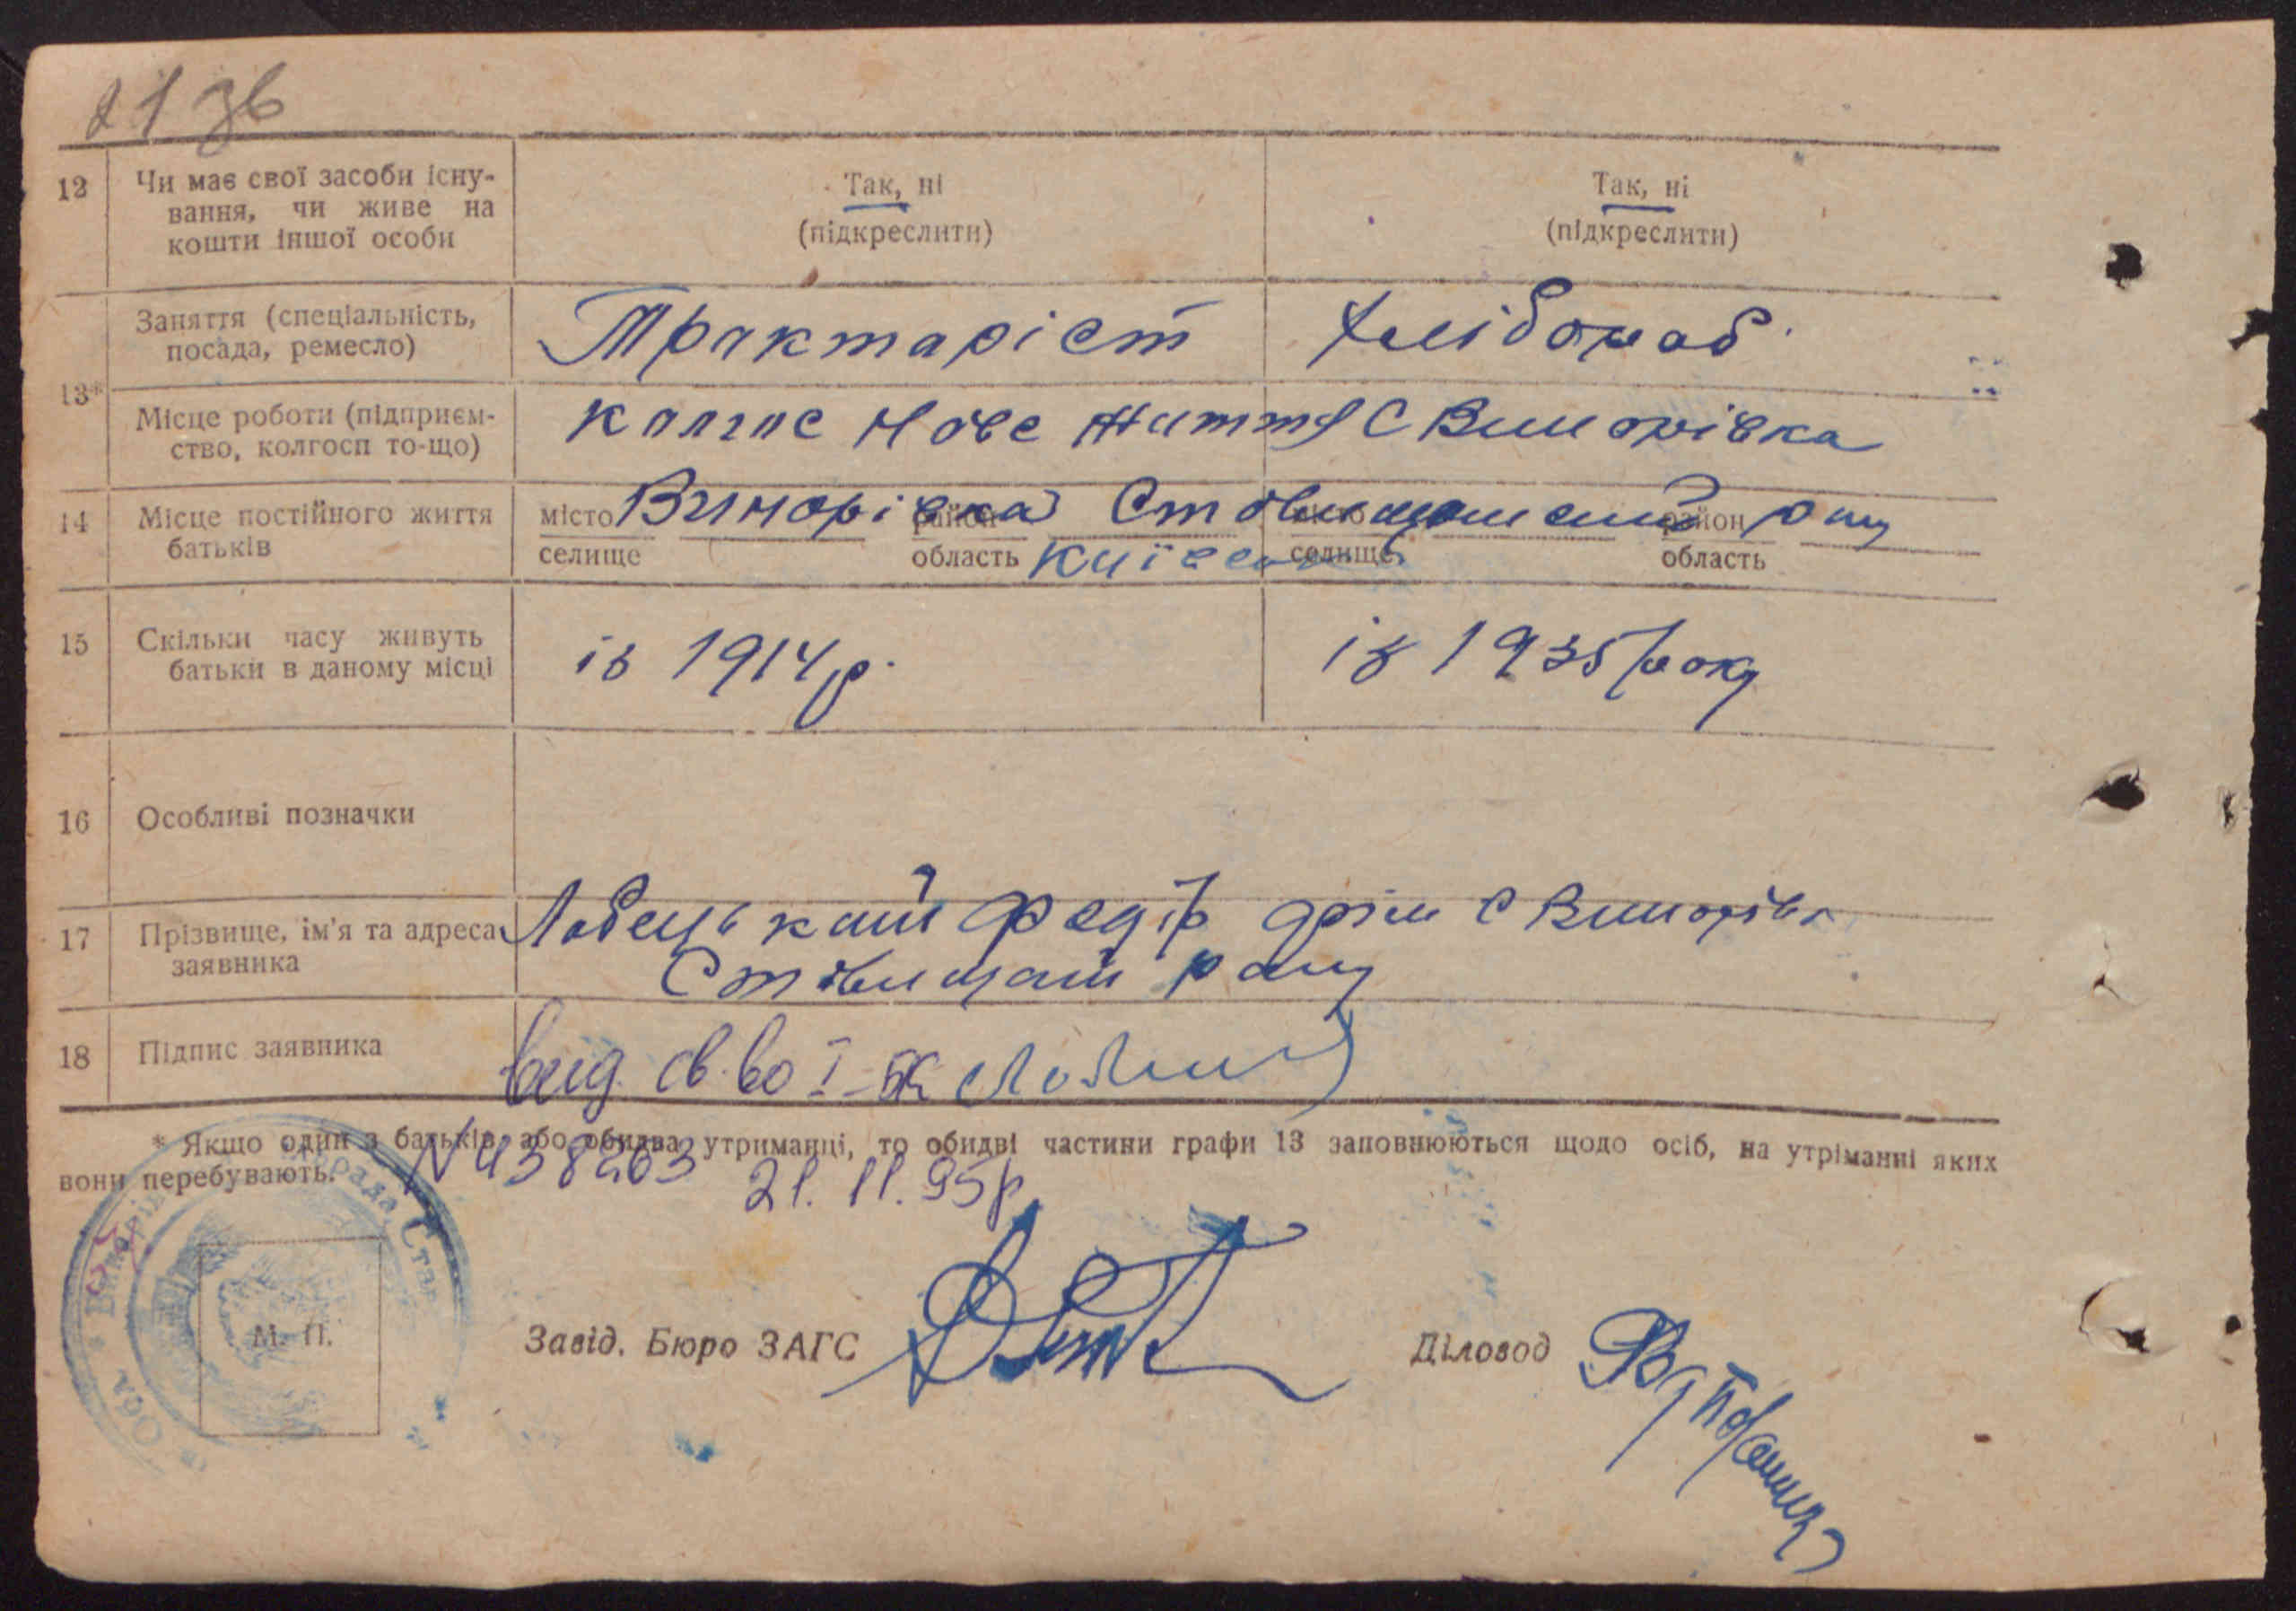 21 зв
12 Чи має свої засоби існу-
вання, чи живе на
кошти іншої особи
Так, ні
(підкреслити)
Так, ні
(підкреслити)
13*
Заняття (спеціальність,
посада, ремесло)
Трактаріст
Хлібороб
Місце роботи (підприєм-
ство, колгосп то-що)
Колгос Нове Життя С Винорівка
14 Місце постійного життя
батьків
місто Винорівка район Ставищанський район
селище область Київська селище область
15 Скільки часу живуть
батьки в даному місці
із 1914 р.
із 1935 року
16 Особливі позначки
17 Прізвище, ім'я та адреса
заявника
Федір С Винорівк
18 Підпис заявника
вид. св-во І-ЖК
* Якщо один з батьків або обидва утриманці, то обидві частини графи 13 заповнюються щодо осіб, на утріманні яких
вони перебувають.
21. 11. 95р
М. П.
Завід. Бюро ЗАГС
Діловод